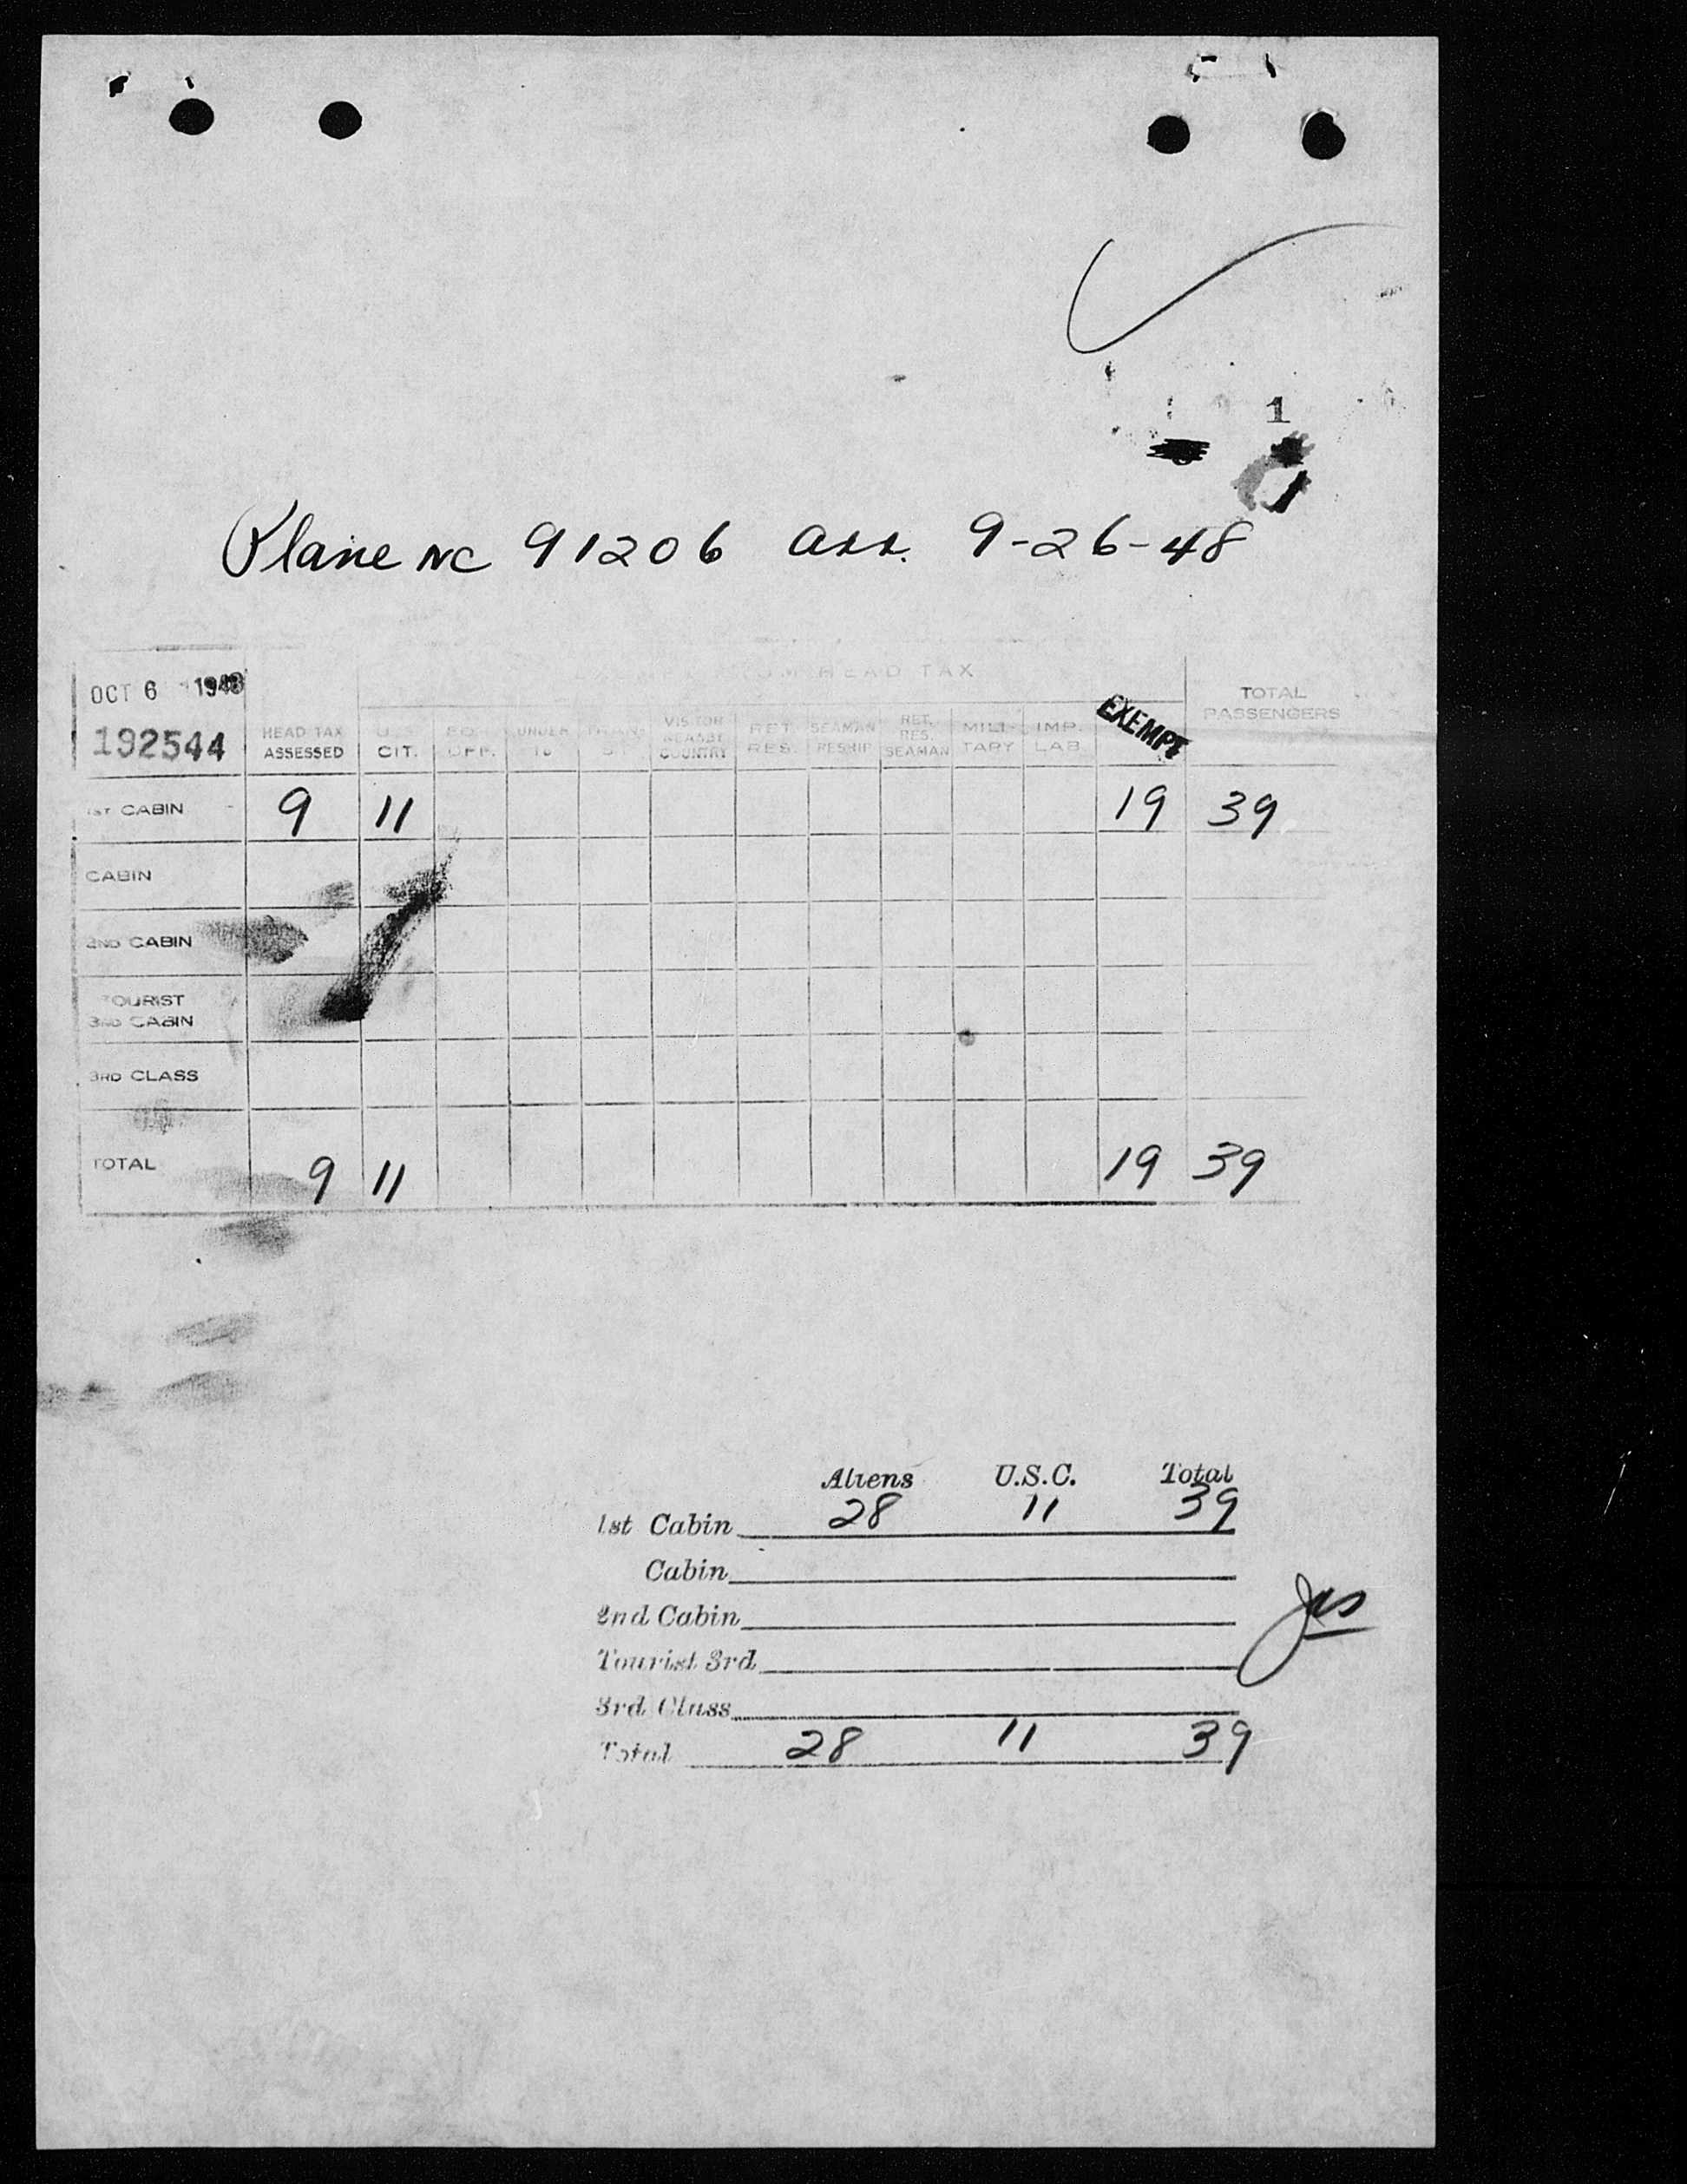 1
Plane NC 91206 arr. 9-26-48
HEAD TAX
OCT 6 1948
192544
HEAD TAX ASSESSED
U.S. CIT.
OFF.
UNDER 16
VISITOR NEARBY COUNTRY
RET. RES.
SEAMAN RESHIP
RET. RES. SEAMAN
MILI- TARY
IMP. LAB.
EXEMPT
TOTAL PASSENGERS
1ST CABIN 9 11 19 39
CABIN
2ND CABIN
TOURIST
3RD CABIN
3RD CLASS
TOTAL 9 11 19 39
Aliens U.S.C. Total
1st Cabin 28 11 39
Cabin
2nd Cabin
Tourist 3rd
3rd Class
Total 28 11 39